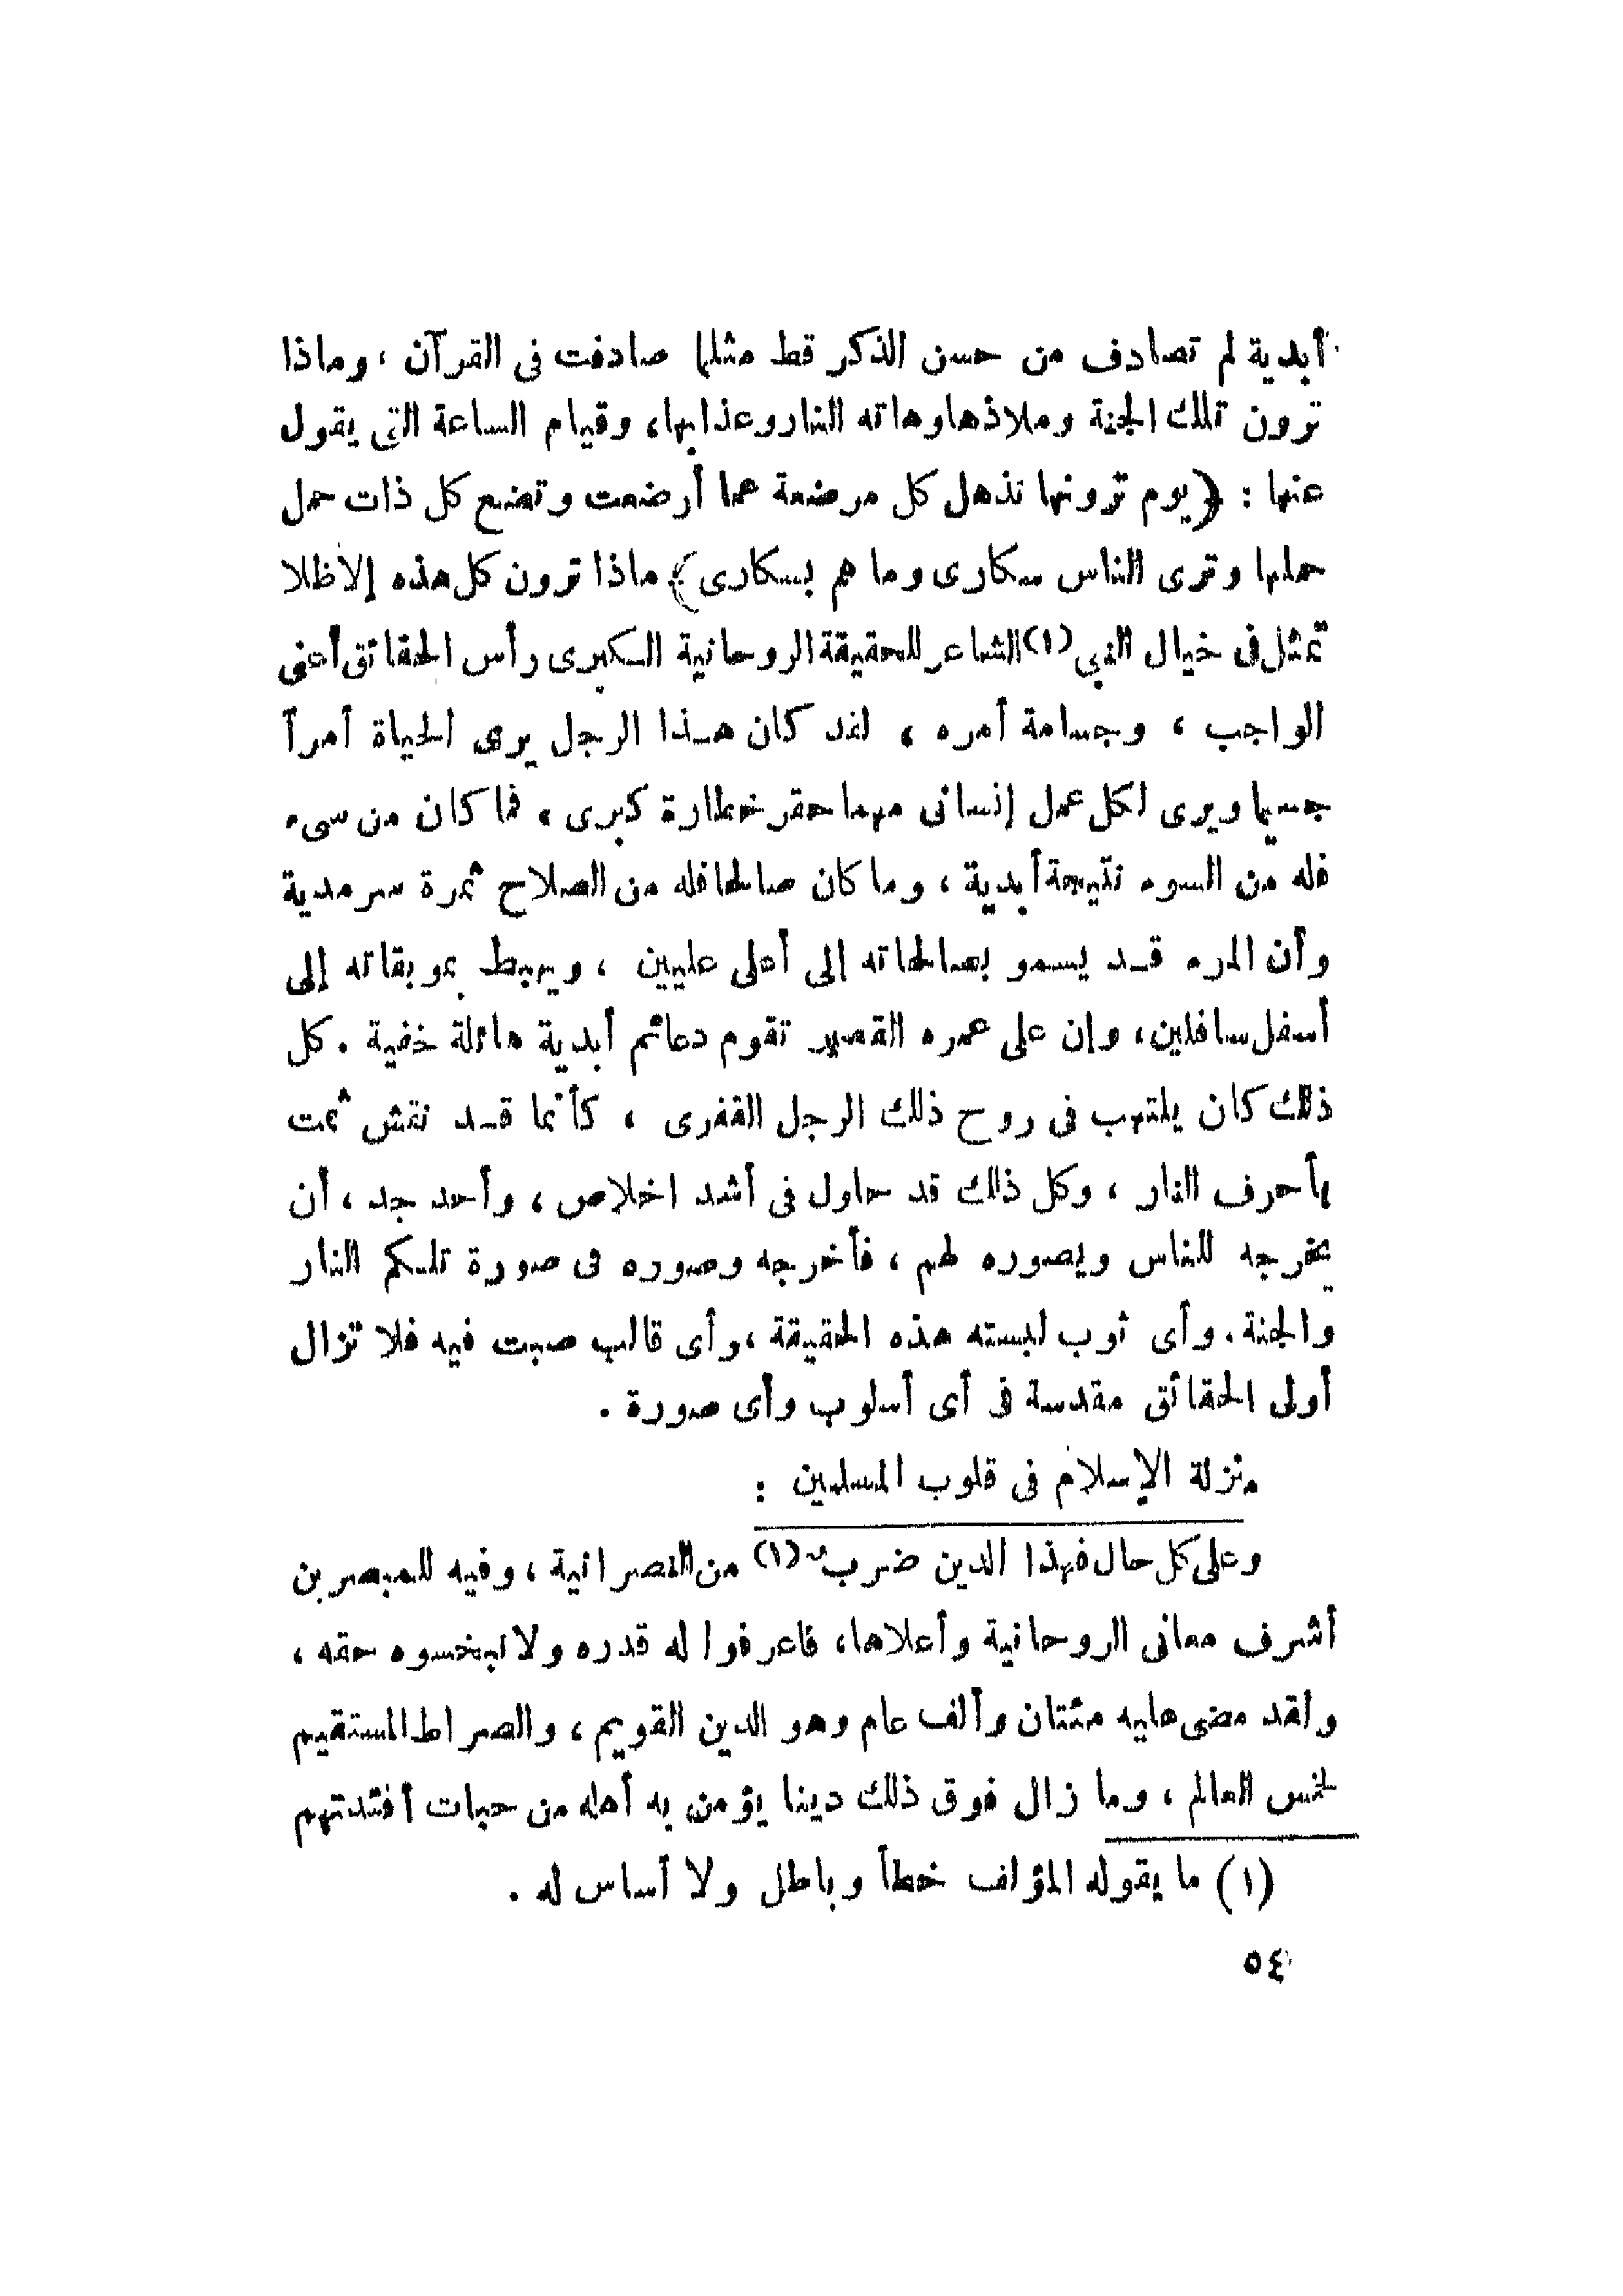 أبدية لم تصادف من حسن الذكر قط مثلما صادفت فى القرآن ، وماذا
ترون تلك الجنة وملاذها وهاته النار وعذابها ، وقيام الساعة التى يقول
عنها : ﴿ يوم ترونها تذهل كل مرضعة عما أرضعت وتضع كل ذات حمل
حملها وترى الناس سكارى وما هم بسكارى ﴾ ماذا ترون كل هذه إلا ظلا
تمثل فى خيال النبي (١) الشاعر للحقيقة الروحانية الكبرى رأس الحقائق أعنى
الواجب ، وجسامة أمره ، لقد كان هذا الرجل يرى الحياة أمراً
جسيما ويرى لكل عمل إنسانى مهما حقر خطارة كبرى ، فما كان من سىء
فله من السوء نتيجة أبدية ، وما كان صالحا فله من الصلاح ثمرة سرمدية
وأن المرء قد يسمو بصالحاته إلى أعلى عليين ، ويهبط بموبقاته إلى
أسفل سافلين ، وإن على عمره القصير تقوم دعائم أبدية هائلة خفية . كل
ذلك كان يلتهب فى روح ذلك الرجل القفرى ، كأنما قد نقش ثمت
بأحرف النار ، وكل ذلك قد حاول فى أشد اخلاص ، وأحد جد ، أن
يخرجه للناس ويصوره لهم ، فأخرجه وصوره فى صورة تلكم النار
والجنة . وأى ثوب لبسته هذه الحقيقة ، وأى قالب صبت فيه فلا تزال
أولى الحقائق مقدسة فى أى أسلوب وأى صورة .
منزلة الإسلام فى قلوب المسلمين :
وعلى كل حال فهذا الدين ضرب (١) من النصرانية ، وفيه للمبصرين
أشرف معانى الروحانية وأعلاها ، فاعرفوا له قدره ولا تبخسوه حقه ،
ولقد مضى عليه مئتان وألف عام وهو الدين القويم ، والصراط المستقيم
لخمس العالم ، وما زال فوق ذلك دينا يؤمن به أهله من حبات أفئدتهم
(١) ما يقوله المؤلف خطأ وباطل ولا أساس له .
٥٤